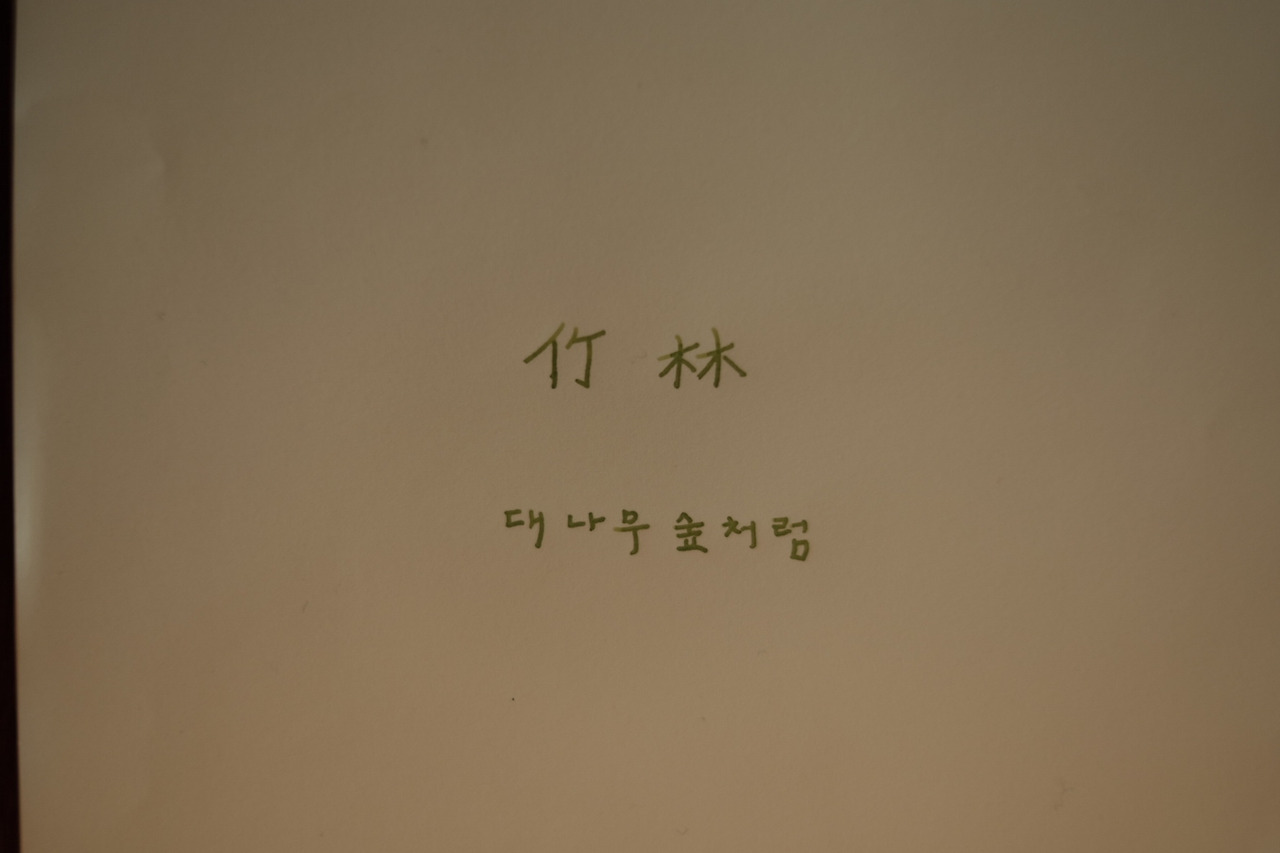 竹 林
대나무 숲처럼